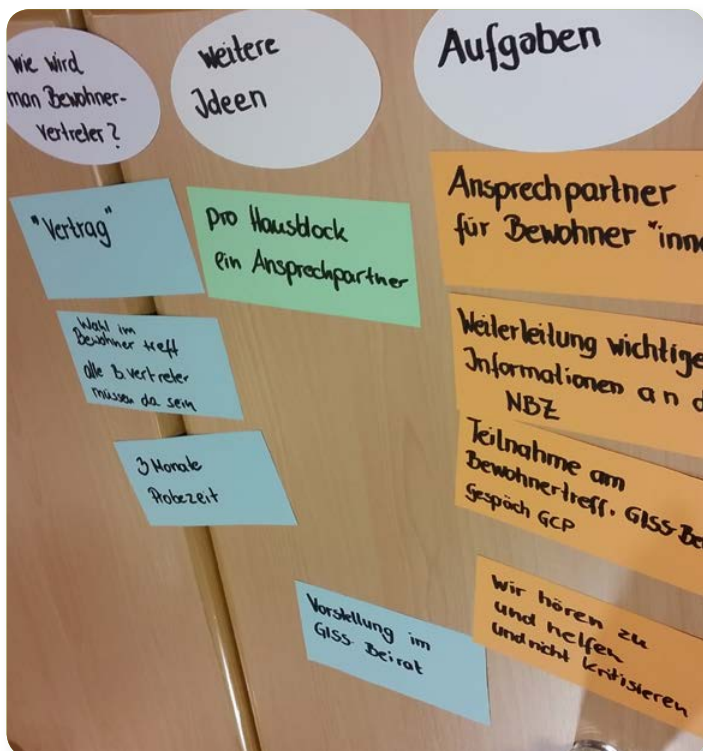 Wie wird
man Bewohner-
vertreter?
"Vertrag"
Wahl im
Bewohnertreff
alle B.vertreter
müssen da sein
3 Monate
Probezeit
Vorstellung im
GISS-Beirat
Weitere
Ideen
pro Hausblock
ein Ansprechpartner
Aufgaben
Ansprechpartner
für Bewohner*inne
Weiterleitung wichtige
Informationen an d
NBZ
Teilnahme am
Bewohnertreff, GISS-Be
Gespäch GCP
Wir hören zu
und helfen
und nicht kritisieren